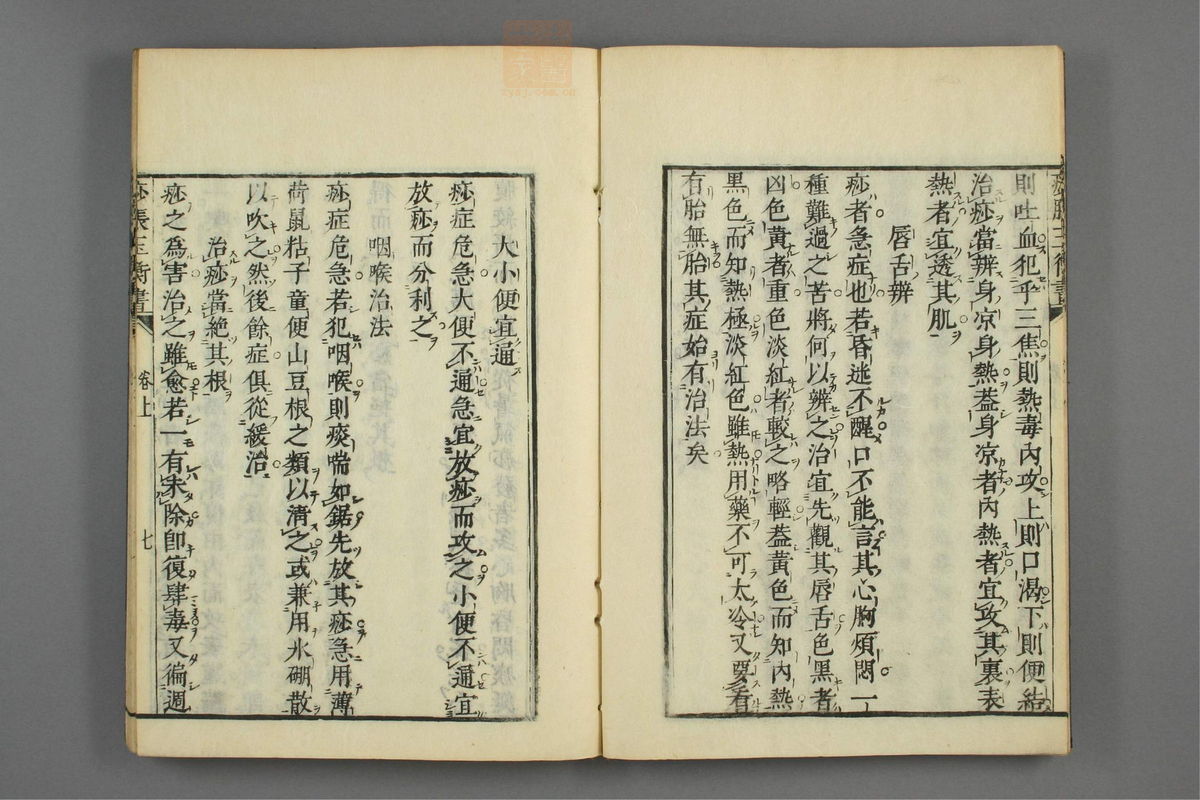 則吐血犯乎三焦則熱毒內攻上則口渴下則便結
治痧當辨身凉身熱葢身凉者內熱者宜攻其裏表
熱者宜透其肌
唇舌辨
痧者急症也若昏迷不醒口不能言其心胸煩悶一
種難過之苦將何以辨之治宜先觀其唇舌色黑者
凶色黃者重色淡紅者較之略輕葢黃色而知內熱
黑色而知熱極淡紅色雖熱用藥不可太冷又要看
有胎無胎其症始有治法矣
大小便宜通
痧症危急大便不通急宜放痧而攻之小便不通宜
放痧而分利之
咽喉治法
痧症危急若犯咽喉則痰喘如鋸先放其痧急用薄
荷鼠粘子童便山豆根之類以清之或兼用氷硼散
以吹之然後餘症俱從緩治
治痧當絶其根
痧之爲害治之雖愈若一有未除卽復肆毒又徧週
痧脹玉衡書
卷上
七